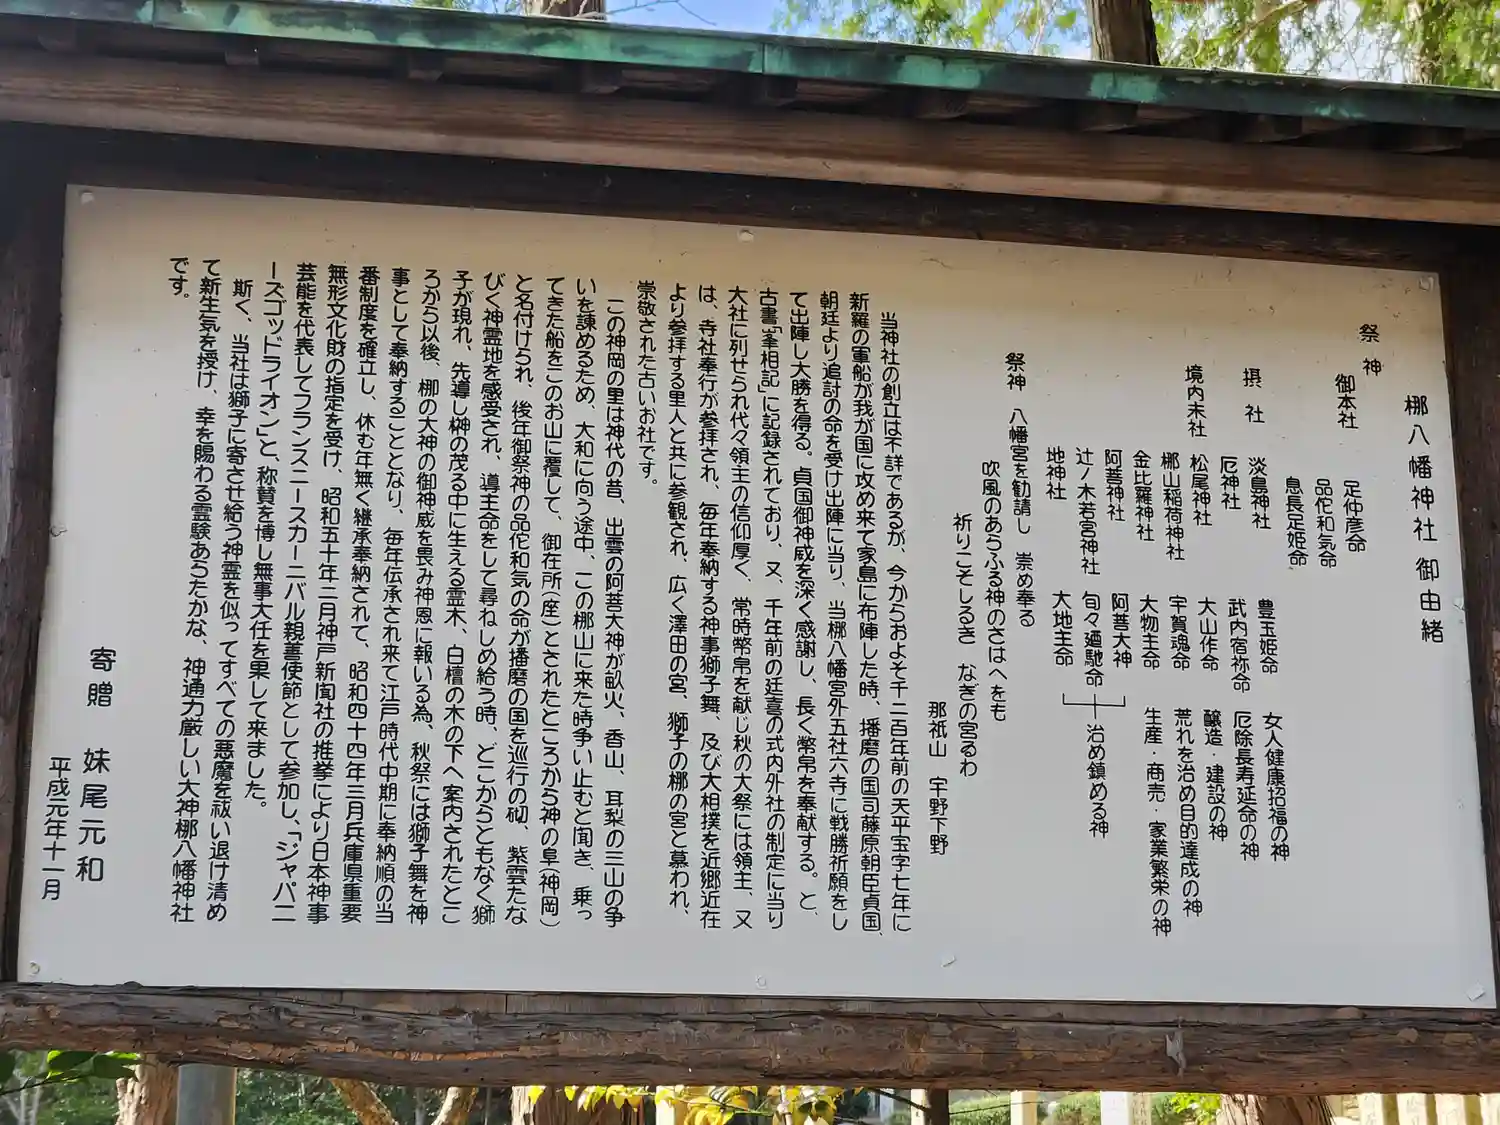 梛八幡神社 御由緒
祭神
御本社
足仲彦命
品佗和気命
息長足姫命
摂社
淡島神社 豊玉姫命 女人健康招福の神
厄神社 武内宿祢命 厄除長寿延命の神
境内末社
松尾神社 大山作命 醸造・建設の神
梛山稲荷神社 宇賀魂命 荒れを治め目的達成の神
金比羅神社 大物主命 生産・商売・家業繁栄の神
阿菩神社 阿菩大神
辻ノ木若宮神社 旬々廼馳命 治め鎮める神
地神社 大地主命
祭神 八幡宮を勧請し 崇め奉る
吹風のあらふる神のさはへをも
祈りこそしるき なぎの宮るわ
那祇山 宇野下野
当神社の創立は不詳であるが、今からおよそ千二百年前の天平宝字七年に
新羅の軍船が我が国に攻め来て家島に布陣した時、播磨の国司藤原朝臣貞国、
朝廷より追討の命を受け出陣に当り、当梛八幡宮外五社六寺に戦勝祈願をし
て出陣し大勝を得る。貞国御神威を深く感謝し、長く幣帛を奉献する。と、
古書「峯相記」に記録されており、又、千年前の延喜の式内外社の制定に当り
大社に列せられ代々領主の信仰厚く、常時幣帛を献じ秋の大祭には領主、又
は、寺社奉行が参拝され、毎年奉納する神事獅子舞、及び大相撲を近郷近在
より参拝する里人と共に参観され、広く澤田の宮、獅子の梛の宮と慕われ、
崇敬された古いお社です。
この神岡の里は神代の昔、出雲の阿菩大神が畝火、香山、耳梨の三山の争
いを諫めるため、大和に向う途中、この梛山に来た時争い止むと聞き、乗っ
てきた船をこのお山に覆して、御在所(座)とされたところから神の阜(神岡)
と名付けられ、後年御祭神の品佗和気の命が播磨の国を巡行の砌、紫雲たな
びく神霊地を感受され、導主命をして尋ねしめ給う時、どこからともなく獅
子が現れ、先導し榊の茂る中に生える霊木、白檀の木の下へ案内されたとこ
ろから以後、梛の大神の御神威を畏み神恩に報いる為、秋祭には獅子舞を神
事として奉納することとなり、毎年伝承され来て江戸時代中期に奉納順の当
番制度を確立し、休む年無く継承奉納されて、昭和四十四年三月兵庫県重要
無形文化財の指定を受け、昭和五十年二月神戸新聞社の推挙により日本神事
芸能を代表してフランスニースカーニバル親善使節として参加し、「ジャパニ
ーズゴッドライオン」と、称賛を博し無事大任を果して来ました。
斯く、当社は獅子に寄させ給う神霊を似ってすべての悪魔を祓い退け清め
て新生気を授け、幸を賜わる霊験あらたかな、神通力厳しい大神梛八幡神社
です。
寄贈 妹尾元和
平成元年十一月